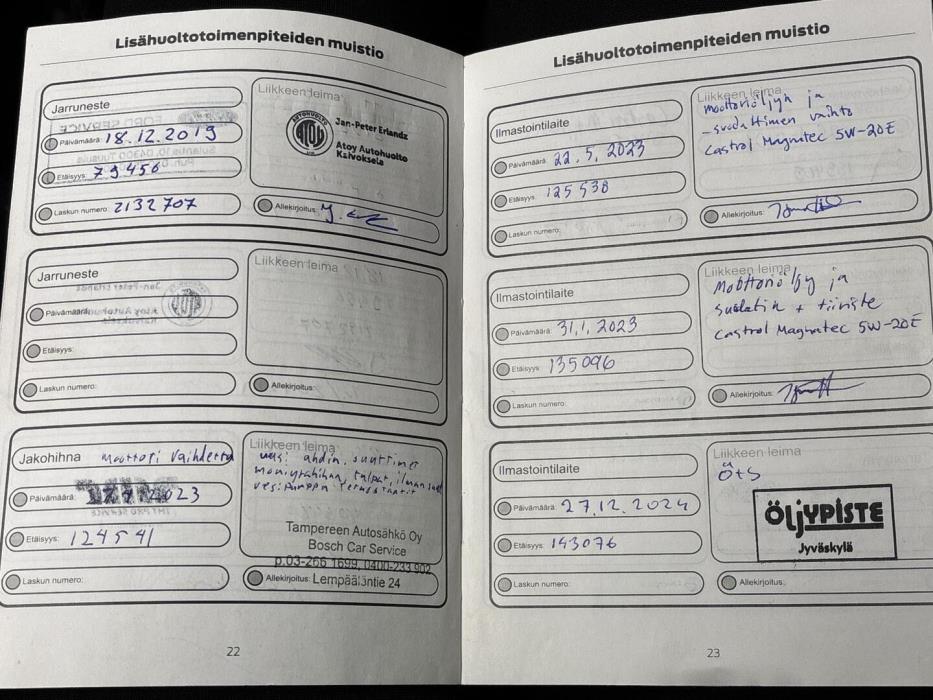 Lisähuoltotoimenpiteiden muistio
Jarruneste
Päivämäärä: 18.12.2019
Etäisyys: 79456
Laskun numero: 2132707
Liikkeen leima
AUTOHUOLTO
ATOY
Jan-Peter Erlandz
Atoy Autohuolto
Kaivoksela
Allekirjoitus:
Jarruneste
Päivämäärä:
Etäisyys:
Laskun numero:
Liikkeen leima
Allekirjoitus:
Jakohihna moottori vaihdettu
Päivämäärä: 2023
Etäisyys: 124541
Laskun numero:
Liikkeen leima
uusi ahdin, suuttimet
moniurahihna, tulpat,
vesipumppu
Tampereen Autosähkö Oy
Bosch Car Service
p.03-266 1699, 0400-233 902
Allekirjoitus: Lempääläntie 24
22
Lisähuoltotoimenpiteiden muistio
Ilmastointilaite
Päivämäärä: 22.5.2023
Etäisyys: 125538
Laskun numero:
Liikkeen leima
moottoriöljyn ja
-suodattimen vaihto
Castrol Magnatec 5W-20E
Allekirjoitus:
Ilmastointilaite
Päivämäärä: 31.1.2023
Etäisyys: 135096
Laskun numero:
Liikkeen leima
Moottoriöljy ja
suodatin + tiiviste
Castrol Magnatec 5W-20E
Allekirjoitus:
Ilmastointilaite
Päivämäärä: 27.12.2024
Etäisyys: 143076
Laskun numero:
Liikkeen leima
Ö+S
ÖLJYPISTE
Jyväskylä
Allekirjoitus:
23